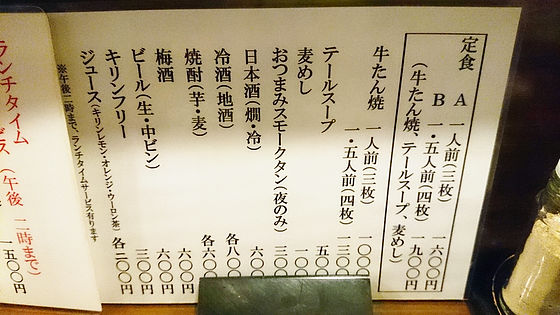 定食 A 一人前(三枚) 一六〇〇円
B 一・五人前(四枚) 一九〇〇円
(牛たん焼、テールスープ、麦めし)
牛たん焼 一人前(三枚) 一〇〇
一・五人前(四枚) 一三〇
テールスープ 五〇
麦めし 一〇
おつまみスモークタン(夜のみ) 三〇
日本酒(燗・冷) 六〇
冷酒(地酒) 各八〇
焼酎(芋・麦) 各六〇
梅酒 六〇〇円
ビール(生・中ビン) 六〇〇円
キリンフリー 三〇〇円
ジュース(キリンレモン・オレンジ・ウーロン茶) 各二〇〇円
※午後二時まで、ランチタイムサービス有ります
ランチタイム
(午後 二時まで)
一五〇〇円